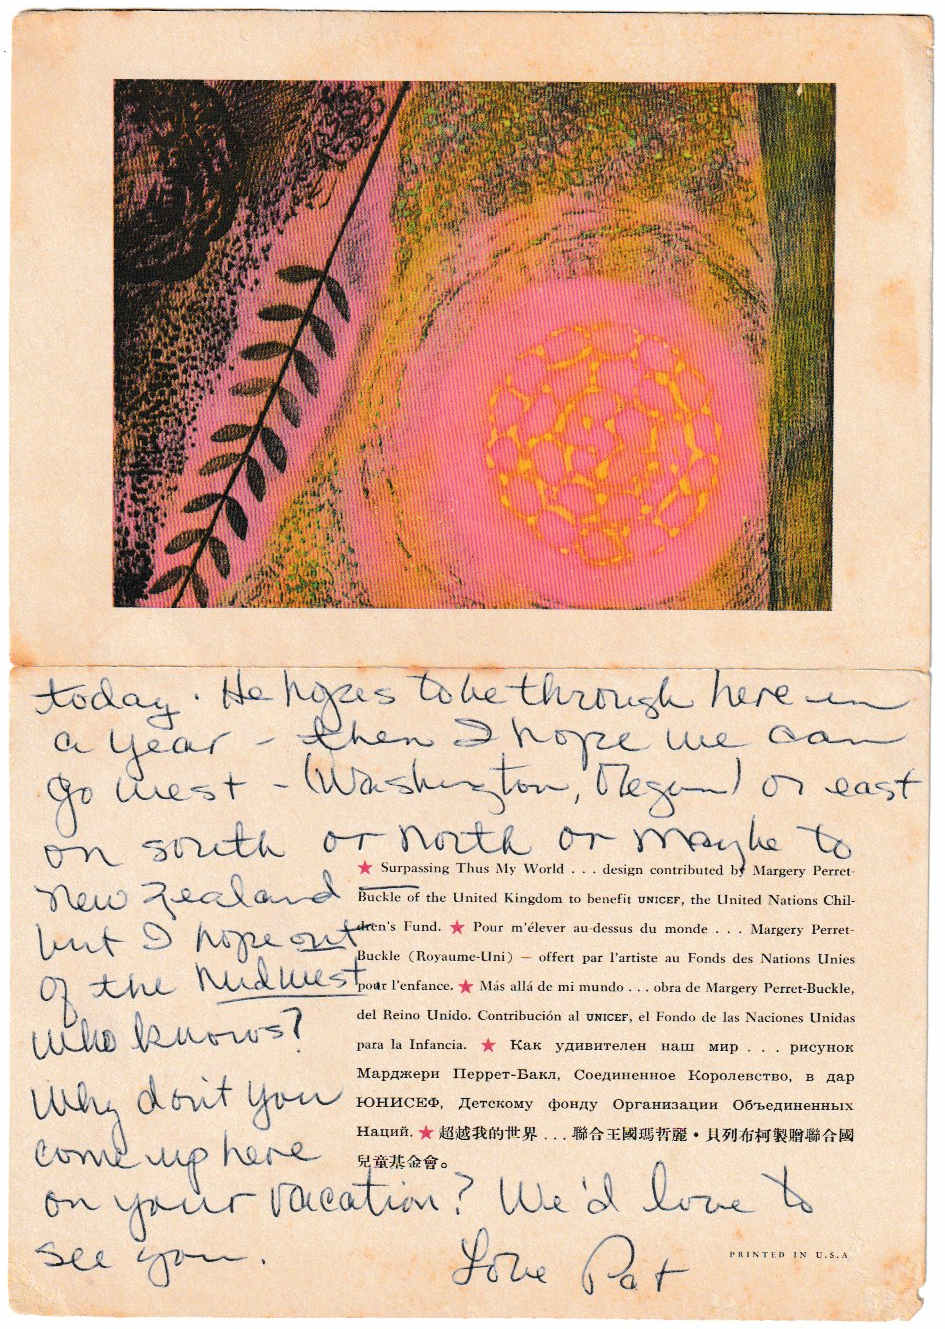 today. He hopes to be through here in
a year - then I hope we can
go west - (Washington, Oregon) or east
on south or north or maybe to
New Zealand
but I hope out
of the Midwest
who knows?
Why don't you
come up here
on your vacation? We'd love to
see you.
Love Pat
★ Surpassing Thus My World . . . design contributed by Margery Perret-
Buckle of the United Kingdom to benefit UNICEF, the United Nations Chil-
dren's Fund. ★ Pour m'élever au-dessus du monde . . . Margery Perret-
Buckle (Royaume-Uni) — offert par l'artiste au Fonds des Nations Unies
pour l'enfance. ★ Más allá de mi mundo . . . obra de Margery Perret-Buckle,
del Reino Unido. Contribución al UNICEF, el Fondo de las Naciones Unidas
para la Infancia. ★ Как удивителен наш мир . . . рисунок
Марджери Перрет-Бакл, Соединенное Королевство, в дар
ЮНИСЕФ, Детскому фонду Организации Объединенных
Наций. ★ 超越我的世界 . . . 聯合王國瑪哲麗・貝列布柯製贈聯合國
兒童基金會。
PRINTED IN U.S.A